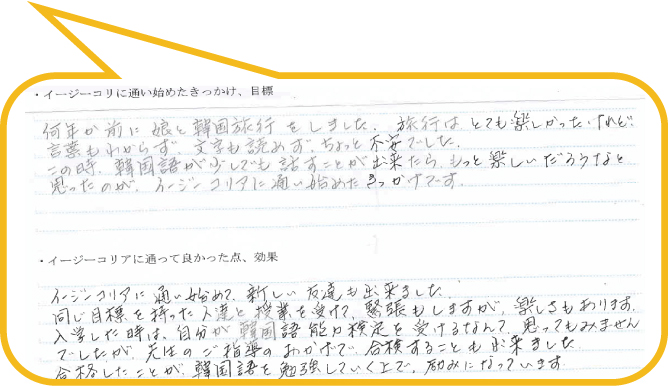 ・イージーコリに通い始めたきっかけ、目標
何年か前に娘と韓国旅行をしました。旅行はとても楽しかったけれど、
言葉もわからず、文字も読めず、ちょっと不安でした。
この時、韓国語が少しでも話すことが出来たら、もっと楽しいだろうなと
思ったのが、イージーコリアに通い始めたきっかけです。
・イージーコリアに通って良かった点、効果
イージーコリアに通い始めて、新しい友達も出来ました。
同じ目標を持った人達と授業を受けて、緊張もしますが、楽しさもあります。
入学した時は、自分が韓国語能力検定を受けるなんて、思ってもみません
でしたが、先生のご指導のおかげで、合検することも出来ました。
合格したことが、韓国語を勉強していく上で、励みになっています。